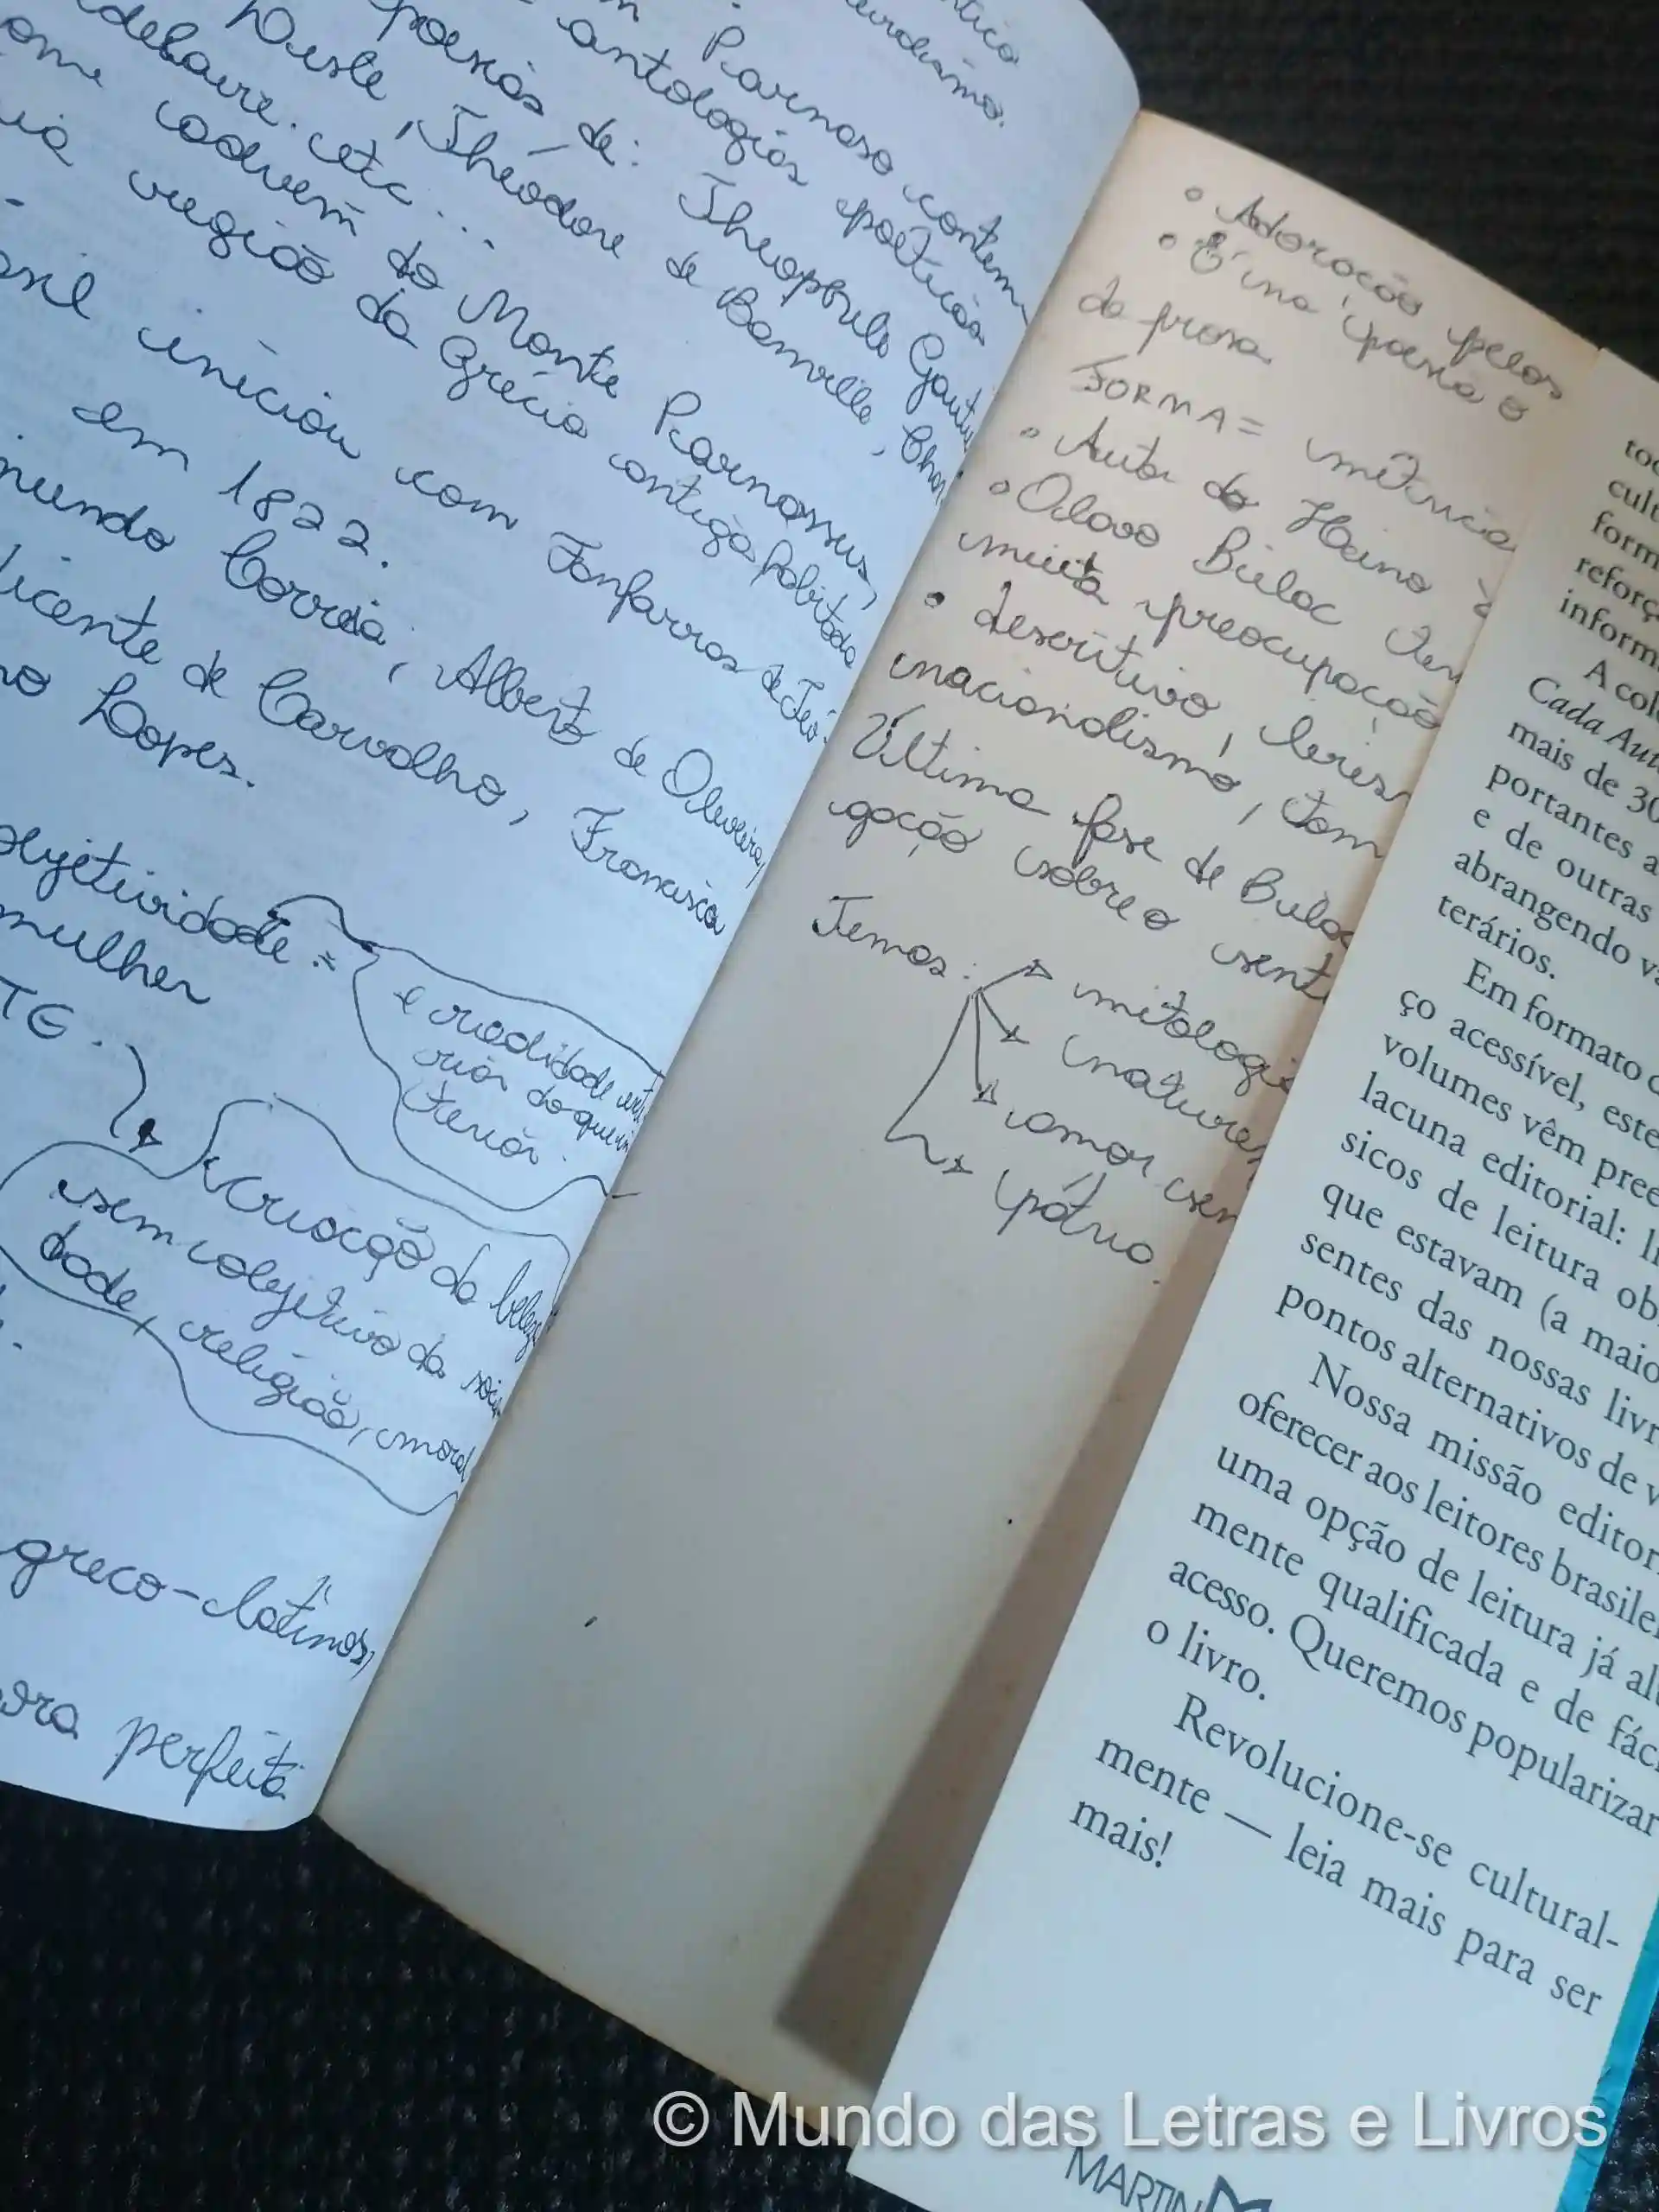 Parnaso contem
antologias poéticas
poesias de: Theophile Gauti
Lisle, Théodore de Banville, Char
delaire. etc...
ome advem do Monte Parnassus,
região da Grécia antiga habitada
asil iniciou com Fanfarras de Teó-
em 1822.
mundo Correia, Alberto de Oliveira,
Vicente de Carvalho, Francisca
no Lopes.
objetividade =
mulher
e realidade
do que
TE.
criação da beleza
sem objetivo da soci
dade, religião, moral
greco-latinos,
perfeita
• Adoração pelos
• É na poesia o
da prosa.
FORMA = métrica
• Autor do Hino à
• Olavo Bilac tem
muita preocupação
• descritivo,
nacionalismo, tom
Última fase de Bilac
gação sobre o sent
Temas:
mitologi
nature
amor sen
pátria.
toc
cult
form
reforç
inform
A cole
Cada Aut
mais de 30
portantes a
e de outras
abrangendo va
terários.
Em formato d
ço acessível, este
volumes vêm pree
lacuna editorial: li
sicos de leitura ob
que estavam (a maio
sentes das nossas livr
pontos alternativos de v
Nossa missão editor
oferecer aos leitores brasile
uma opção de leitura já al
mente qualificada e de fác
acesso. Queremos popularizar
o livro.
Revolucione-se cultural-
mente — leia mais para ser
mais!
© Mundo das Letras e Livros
MARTIN